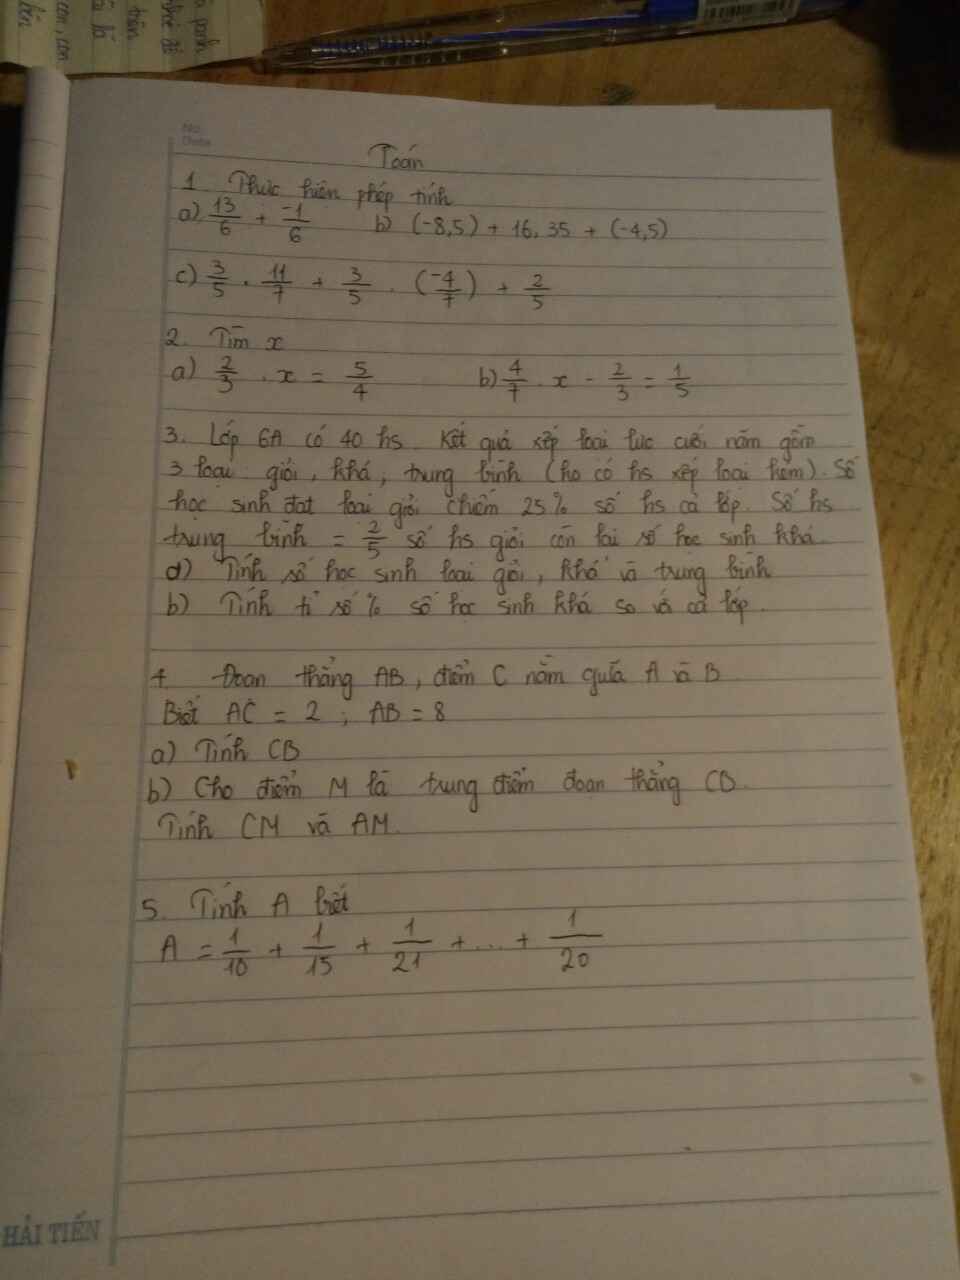 à panh
trên
à là
con, con
lên
No.
Date
Toán
1. Thực hiện phép tính
a) 13/6 + -1/6 b) (-8,5) + 16,35 + (-4,5)
c) 3/5 . 11/7 + 3/5 . (-4/7) + 2/5
2. Tìm x
a) 2/3 . x = 5/4 b) 4/7 . x - 2/3 = 1/5
3. Lớp 6A có 40 hs. Kết quả xếp loại lực cuối năm gồm
3 loại giỏi, khá, trung bình (ko có hs xếp loại kém). Số
học sinh đạt loại giỏi chiếm 25% số hs cả lớp. Số hs
trung bình = 2/5 số hs giỏi còn lại số học sinh khá
a) Tính số học sinh loại giỏi, khá và trung bình
b) Tính tỉ số % số học sinh khá so với cả lớp.
4. Đoạn thẳng AB, điểm C nằm giữa A và B
Biết AC = 2 ; AB = 8
a) Tính CB
b) Cho điểm M là trung điểm đoạn thẳng CB.
Tính CM và AM.
5. Tính A biết
A = 1/10 + 1/15 + 1/21 + ... + 1/20
HẢI TIẾN